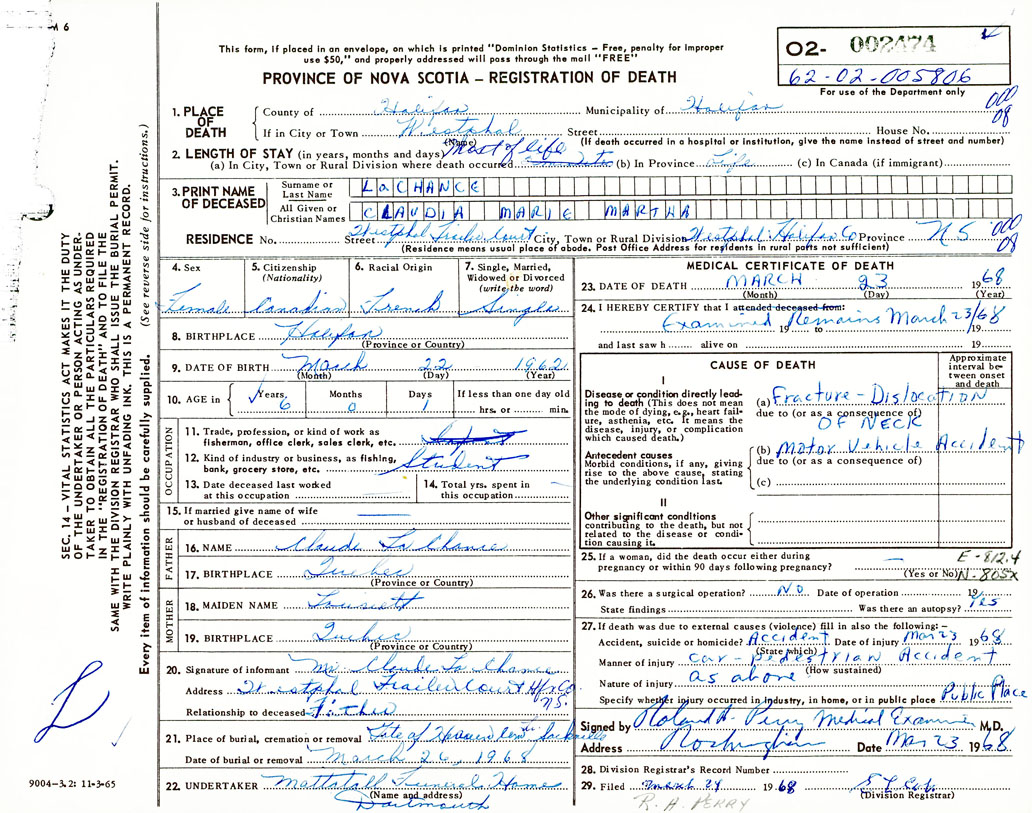 M 6
This form, if placed in an envelope, on which is printed "Dominion Statistics – Free, penalty for improper
use $50," and properly addressed will pass through the mail "FREE"
PROVINCE OF NOVA SCOTIA – REGISTRATION OF DEATH
02- 002474
62-02-005806
For use of the Department only
000
08
1. PLACE OF DEATH
County of Halifax Municipality of Halifax
If in City or Town Westphal Street House No.
(Name) (If death occurred in a hospital or institution, give the name instead of street and number)
2. LENGTH OF STAY (in years, months and days) Most of life
(a) In City, Town or Rural Division where death occurred (b) In Province Life (c) In Canada (if immigrant)
3. PRINT NAME OF DECEASED
Surname or Last Name LaCHANCE
All Given or Christian Names CLAUDIA MARIE MARTHA
RESIDENCE No. Street Westphal Trailer Court City, Town or Rural Division Westphal Halifax Co Province NS
000
08
(Residence means usual place of abode. Post Office Address for residents in rural parts not sufficient)
4. Sex Female
5. Citizenship (Nationality) Canadian
6. Racial Origin French
7. Single, Married, Widowed or Divorced (write the word) Single
8. BIRTHPLACE Halifax
(Province or Country)
9. DATE OF BIRTH March 22 1962
(Month) (Day) (Year)
10. AGE in Years 6 Months 0 Days 1 If less than one day old hrs. or min.
OCCUPATION
11. Trade, profession, or kind of work as
fisherman, office clerk, sales clerk, etc.
12. Kind of industry or business, as fishing,
bank, grocery store, etc. Student
13. Date deceased last worked
at this occupation
14. Total yrs. spent in
this occupation
15. If married give name of wife
or husband of deceased
FATHER
16. NAME Claude LaChance
17. BIRTHPLACE Quebec
(Province or Country)
MOTHER
18. MAIDEN NAME
19. BIRTHPLACE Quebec
(Province or Country)
20. Signature of informant Mr. Claude LaChance
Address Westphal Trailer Court Hfx Co
N.S.
Relationship to deceased Father
21. Place of burial, cremation or removal Gate of Heaven
Date of burial or removal March 26, 1968
22. UNDERTAKER Mattatall Funeral Home
(Name and address)
Dartmouth
MEDICAL CERTIFICATE OF DEATH
23. DATE OF DEATH MARCH 23 1968
(Month) (Day) (Year)
24. I HEREBY CERTIFY that I attended deceased from:
Examined Remains March 23/68
19 to 19
and last saw h alive on 19
CAUSE OF DEATH
Approximate interval between onset and death
I
Disease or condition directly leading to death (This does not
the mode of dying, e.g., heart failure, asthenia, etc. It means the
disease, injury, or complication
which caused death.)
(a) Fracture-Dislocation
due to (or as a consequence of)
OF NECK
Antecedent causes
Morbid conditions, if any, giving
rise to the above cause, stating
the underlying condition last.
(b) Motor Vehicle Accident
due to (or as a consequence of)
(c)
II
Other significant conditions
contributing to the death, but not
related to the disease or condition causing it.
25. If a woman, did the death occur either during
pregnancy or within 90 days following pregnancy?
(Yes or No)
E-812.4
N-805X
26. Was there a surgical operation? NO Date of operation 19
State findings Was there an autopsy? Yes
27. If death was due to external causes (violence) fill in also the following: –
Accident, suicide or homicide? Accident Date of injury Mar 23 1968
(State which)
Manner of injury car-Pedestrian Accident
(How sustained)
Nature of injury as above
Specify whether injury occurred in industry, in home, or in public place Public Place
Signed by Roland A. Perry Medical Examiner M.D.
Address Date Mar 23 1968
28. Division Registrar's Record Number
29. Filed March 24 1968
(Division Registrar)
R. A. PERRY
SEC. 14 – VITAL STATISTICS ACT MAKES IT THE DUTY
OF THE UNDERTAKER OR PERSON ACTING AS UNDER-
TAKER TO OBTAIN ALL THE PARTICULARS REQUIRED
IN THE "REGISTRATION OF DEATH" AND TO FILE THE
SAME WITH THE DIVISION REGISTRAR WHO SHALL ISSUE THE BURIAL PERMIT.
WRITE PLAINLY WITH UNFADING INK. THIS IS A PERMANENT RECORD.
Every item of information should be carefully supplied. (See reverse side for instructions.)
9004-3.2: 11-3-65